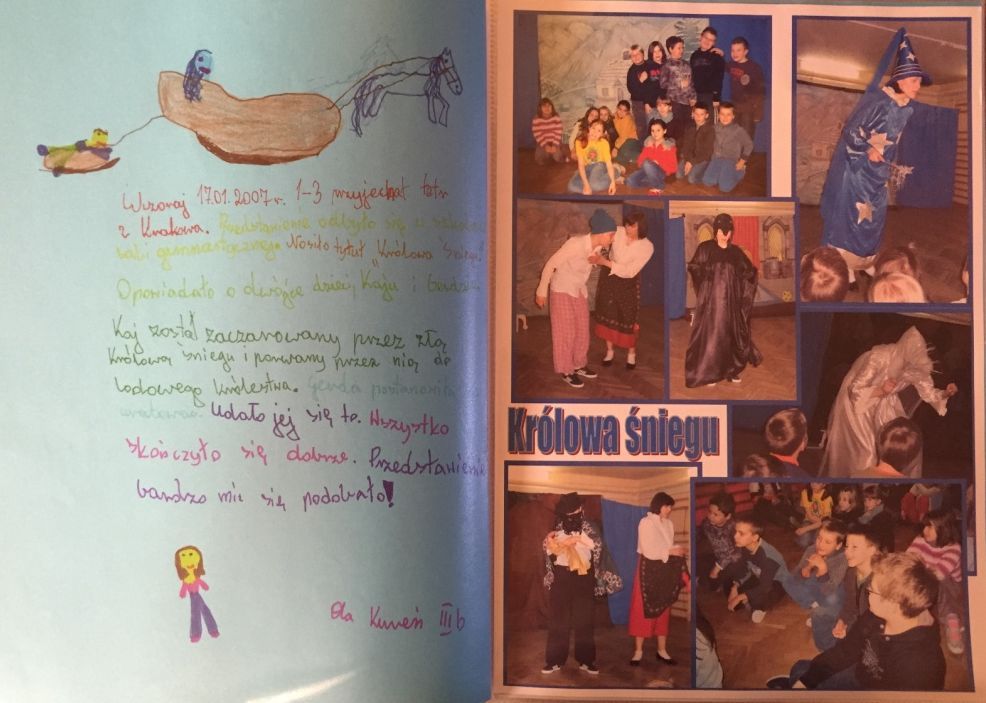 Wczoraj 17.01.2007 r. 1-3 przyjechał teatr
z Krakowa. Przedstawienie odbyło się w
sali gimnastycznej. Nosiło tytuł „Królowa Śniegu"
Opowiadało o dwójce dzieci, Kaju i
Kaj został zaczarowany przez złą
Królową śniegu i porwany przez nią do
lodowego królestwa. Gerda postanowiła
Udało jej się to. Wszystko
skończyło się dobrze. Przedstawienie
bardzo mi się podobało!
Ola III b
Królowa śniegu